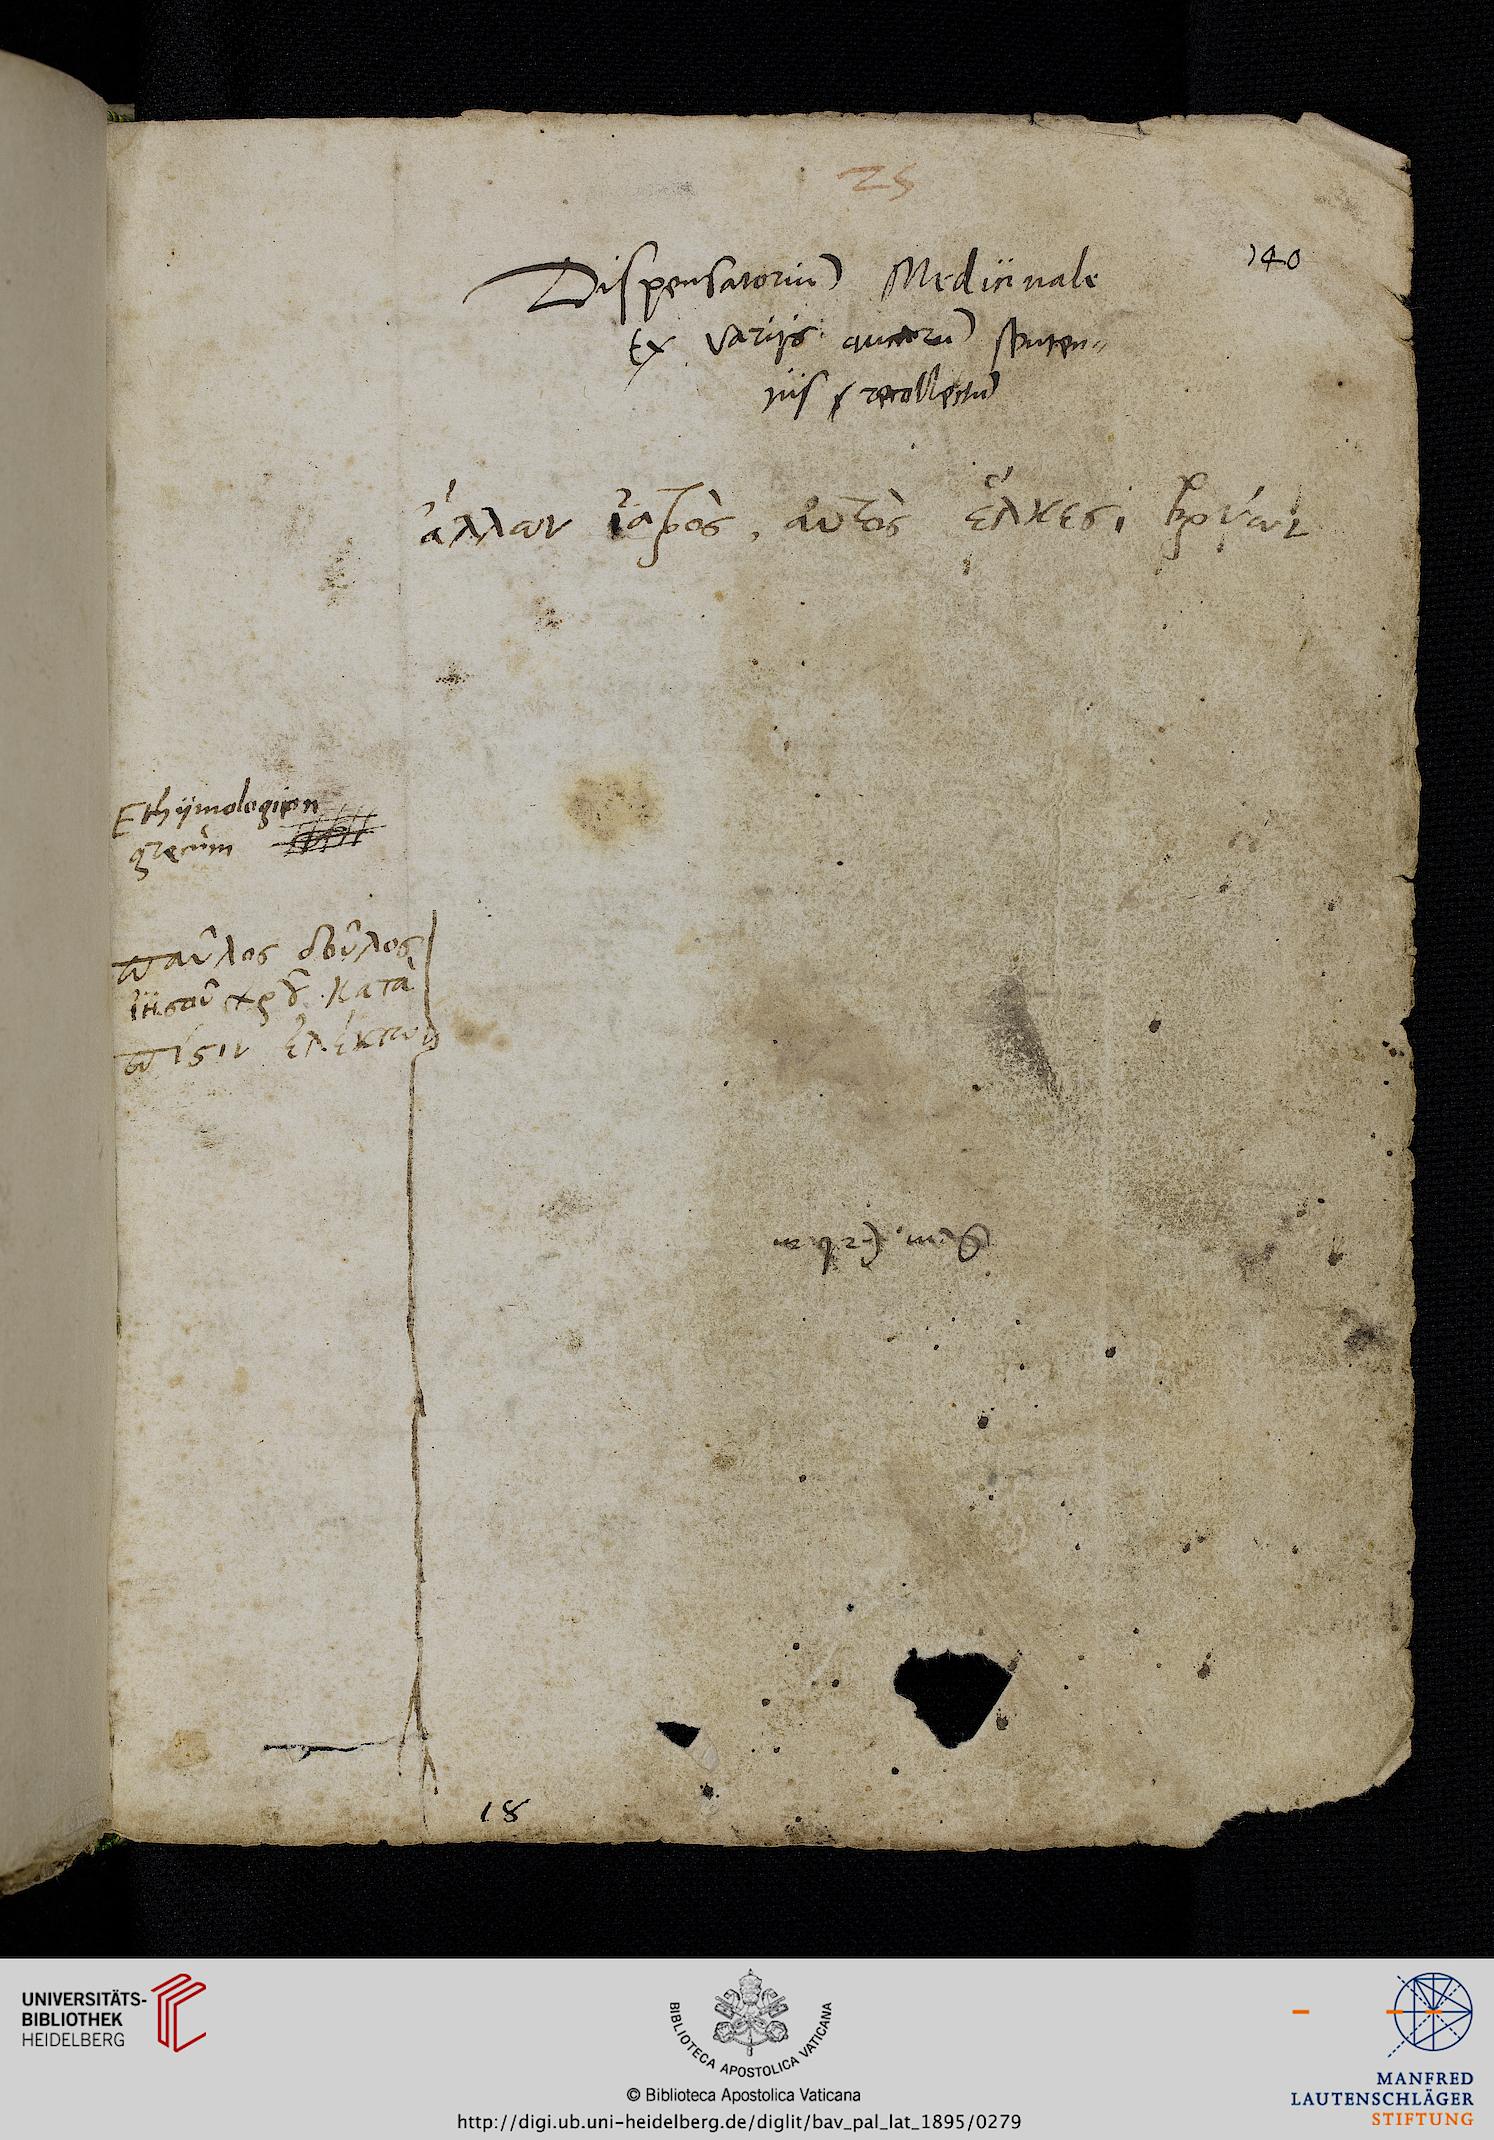 25
140
Dispensatoriū Medicinale
Ex Varijs senten-
tiis recollectū
ἄλλων ἰατρὸς, αυτὸς ἕλκεσι βρύων
Ethijmologion
grecum
παῦλος δοῦλος
ἰησοῦ χρῦ κατὰ
πίσιν ἐλέκτων
18
UNIVERSITÄTS-
BIBLIOTHEK
HEIDELBERG
BIBLIOTECA APOSTOLICA VATICANA
© Biblioteca Apostolica Vaticana
http://digi.ub.uni-heidelberg.de/diglit/bav_pal_lat_1895/0279
MANFRED
LAUTENSCHLÄGER
STIFTUNG